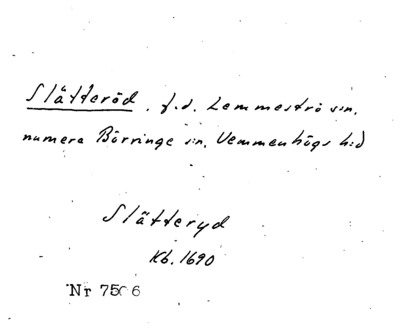 Slätteröd. f.d. Lemmeströ sn.
numera Börringe sn. Vemmenhögs h:d
Slätteryd
Kb. 1690
Nr 7506